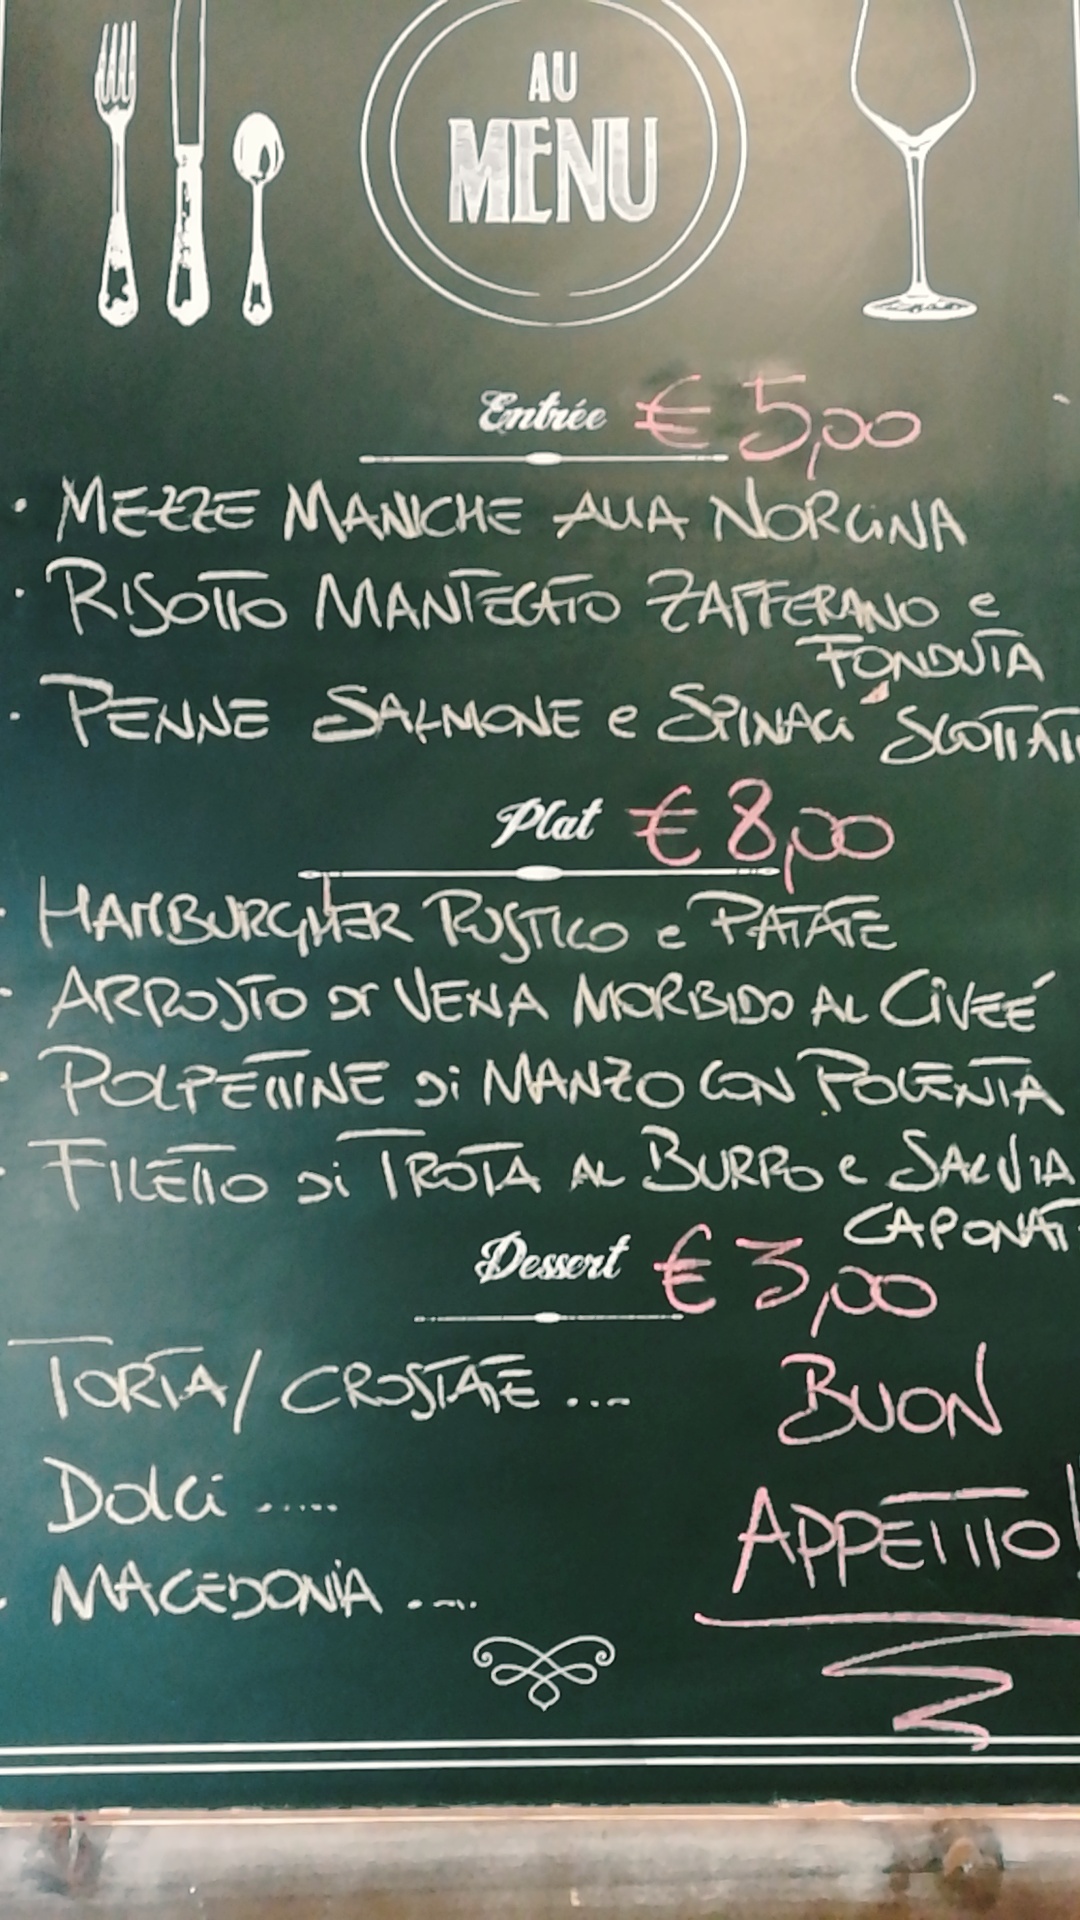 AU
MENU
Entrée € 5,00
· MEZZE MANICHE ALLA NORCINA
· RISOTTO MANTECATO ZAFFERANO e
FONDUTA
· PENNE SALMONE e SPINACI SCOTTATI
Plat € 8,00
· HAMBURGHER RUSTICO e PATATE
· ARROSTO DI VENA MORBIDO AL CIVEÉ
· POLPETTINE Di MANZO CON POLENTA
· FILETTO Di TROTA AL BURRO e SALVIA
CAPONAT
Dessert € 3,00
TORTA/ CROSTATE ...
BUON
Dolci .....
APPETITO!
· MACEDONIA ....